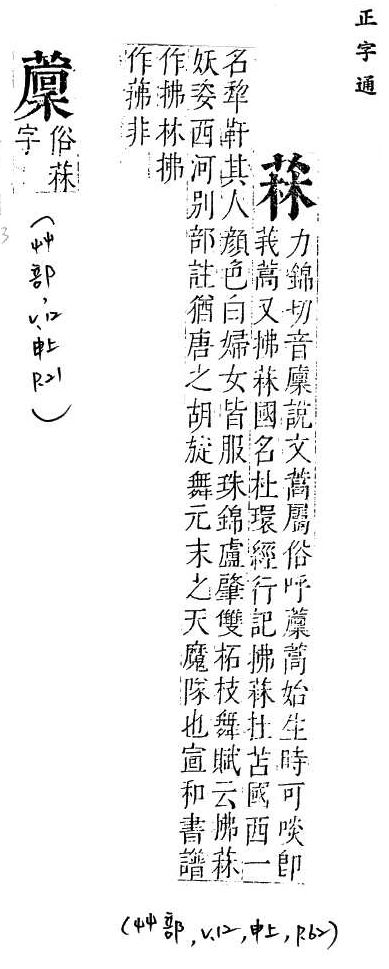 正字通
菻
力錦切音廩說文蒿屬俗呼䕲蒿始生時可啖卽
莪蒿又拂菻國名杜環經行記拂菻在苫國西一
名犂靬其人顏色白婦女皆服珠錦盧肇雙柘枝舞賦云拂菻
妖姿西河別部註猶唐之胡旋舞元末之天魔隊也宣和書譜
作拂林拂
作茀非
(艸部, v.12, 申上, P.62)
䕲
俗菻
字
(艸部, v.12 申上 P.21)